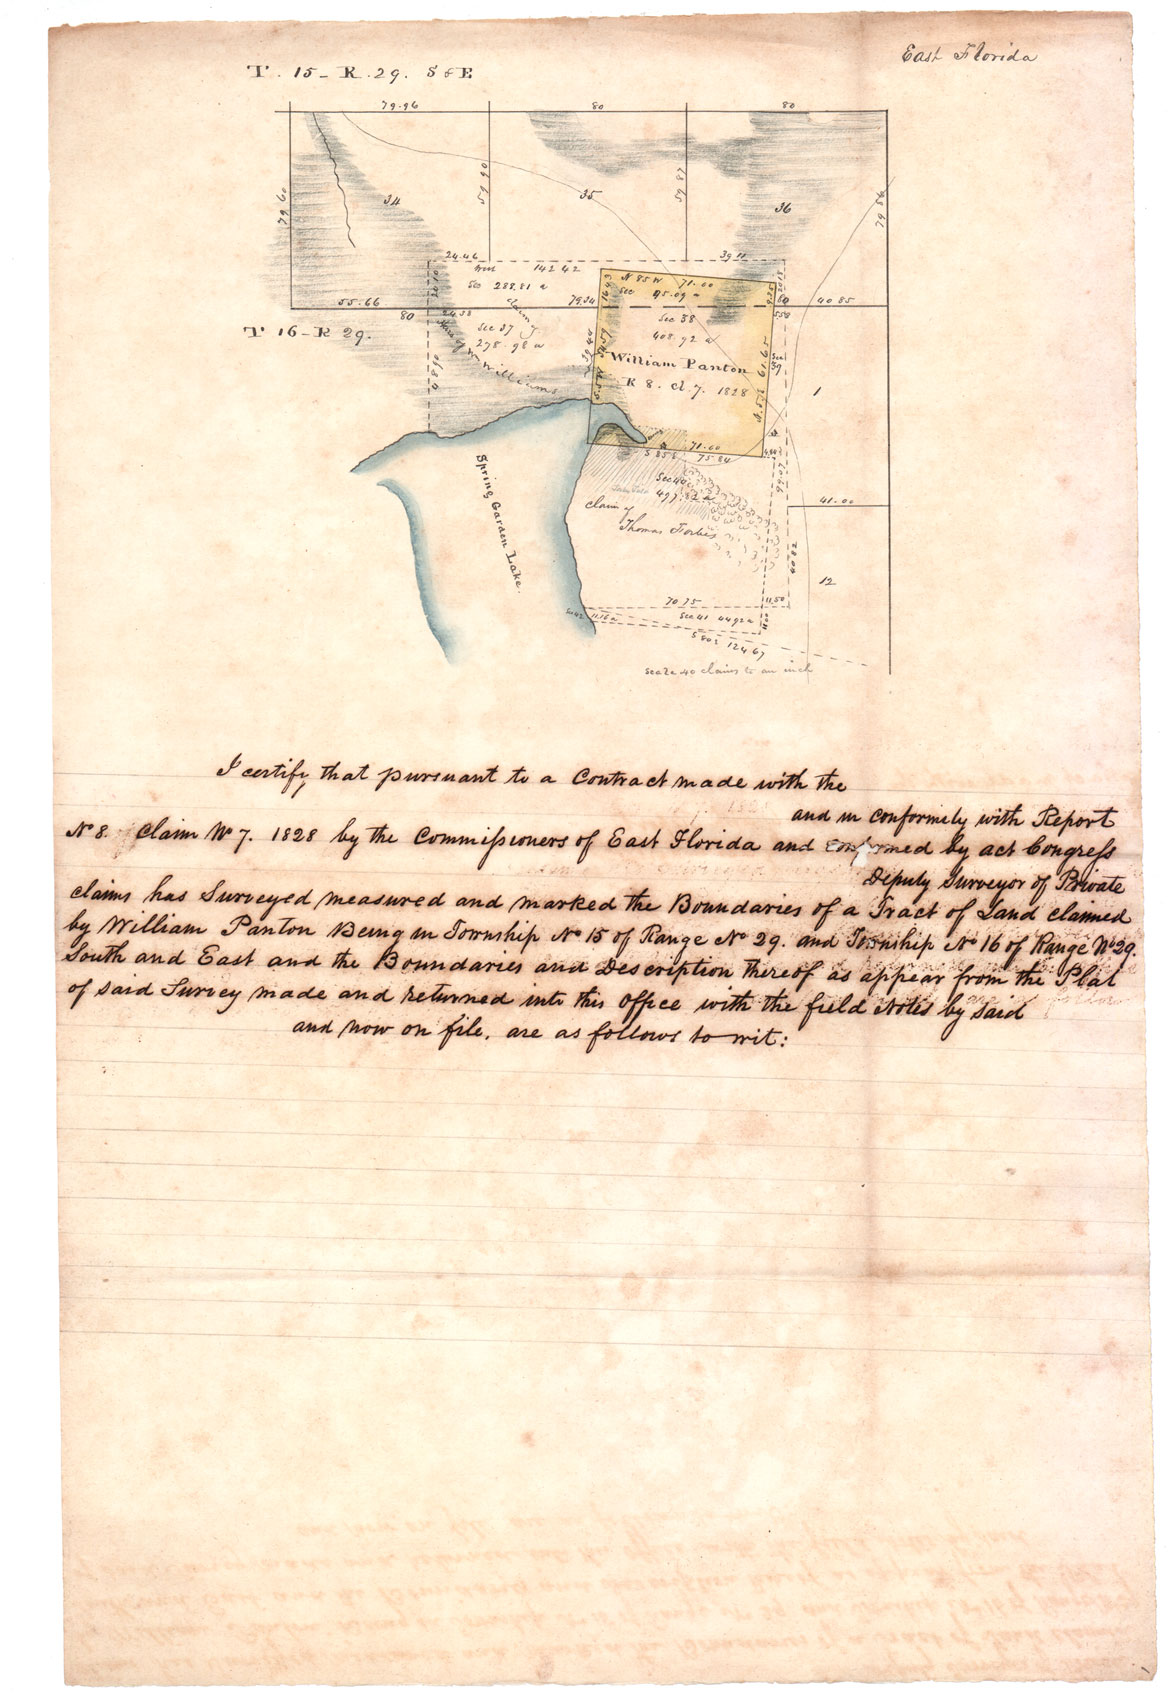 East Florida
T. 15 - R. 29. S & E
79.96
80
80
79 60
59 90
59 87
79 56
34
35
36
24.46
39 11
West
142 42
Sec 288.81 a
N 85 W 71.00
Sec 95.09 a
55.66
80
24.58
79.34
80
40 85
T 16 - R 29.
claim of
Sec 37
278. 98 a
Wm Williams
Sec 38
408.92 a
William Panton
R 8. Cl. 7. 1828
61.65
Sec 39
1
71.00
S 85 E 75 84
Sec 40
497.82 a
claim of
Thomas Forbes
Spring Garden Lake.
41.00
40 82
12
70 75
11.50
Sec 42
Sec 41 4492 a
S 80 E 124 67
Scale 40 chains to an inch
I certify that pursuant to a Contract made with the
and in conformity with Report
No 8. Claim No 7. 1828 by the Commissioners of East Florida and confirmed by act Congress
Deputy Surveyor of Private
claims has Surveyed measured and marked the Boundaries of a Tract of Land claimed
by William Panton Being in Township No 15 of Range No 29. and Township No 16 of Range No 29.
South and East and the Boundaries and Description thereof as appear from the Plat
of said Survey made and returned into this office with the field Notes by said
and now on file, are as follows to wit: